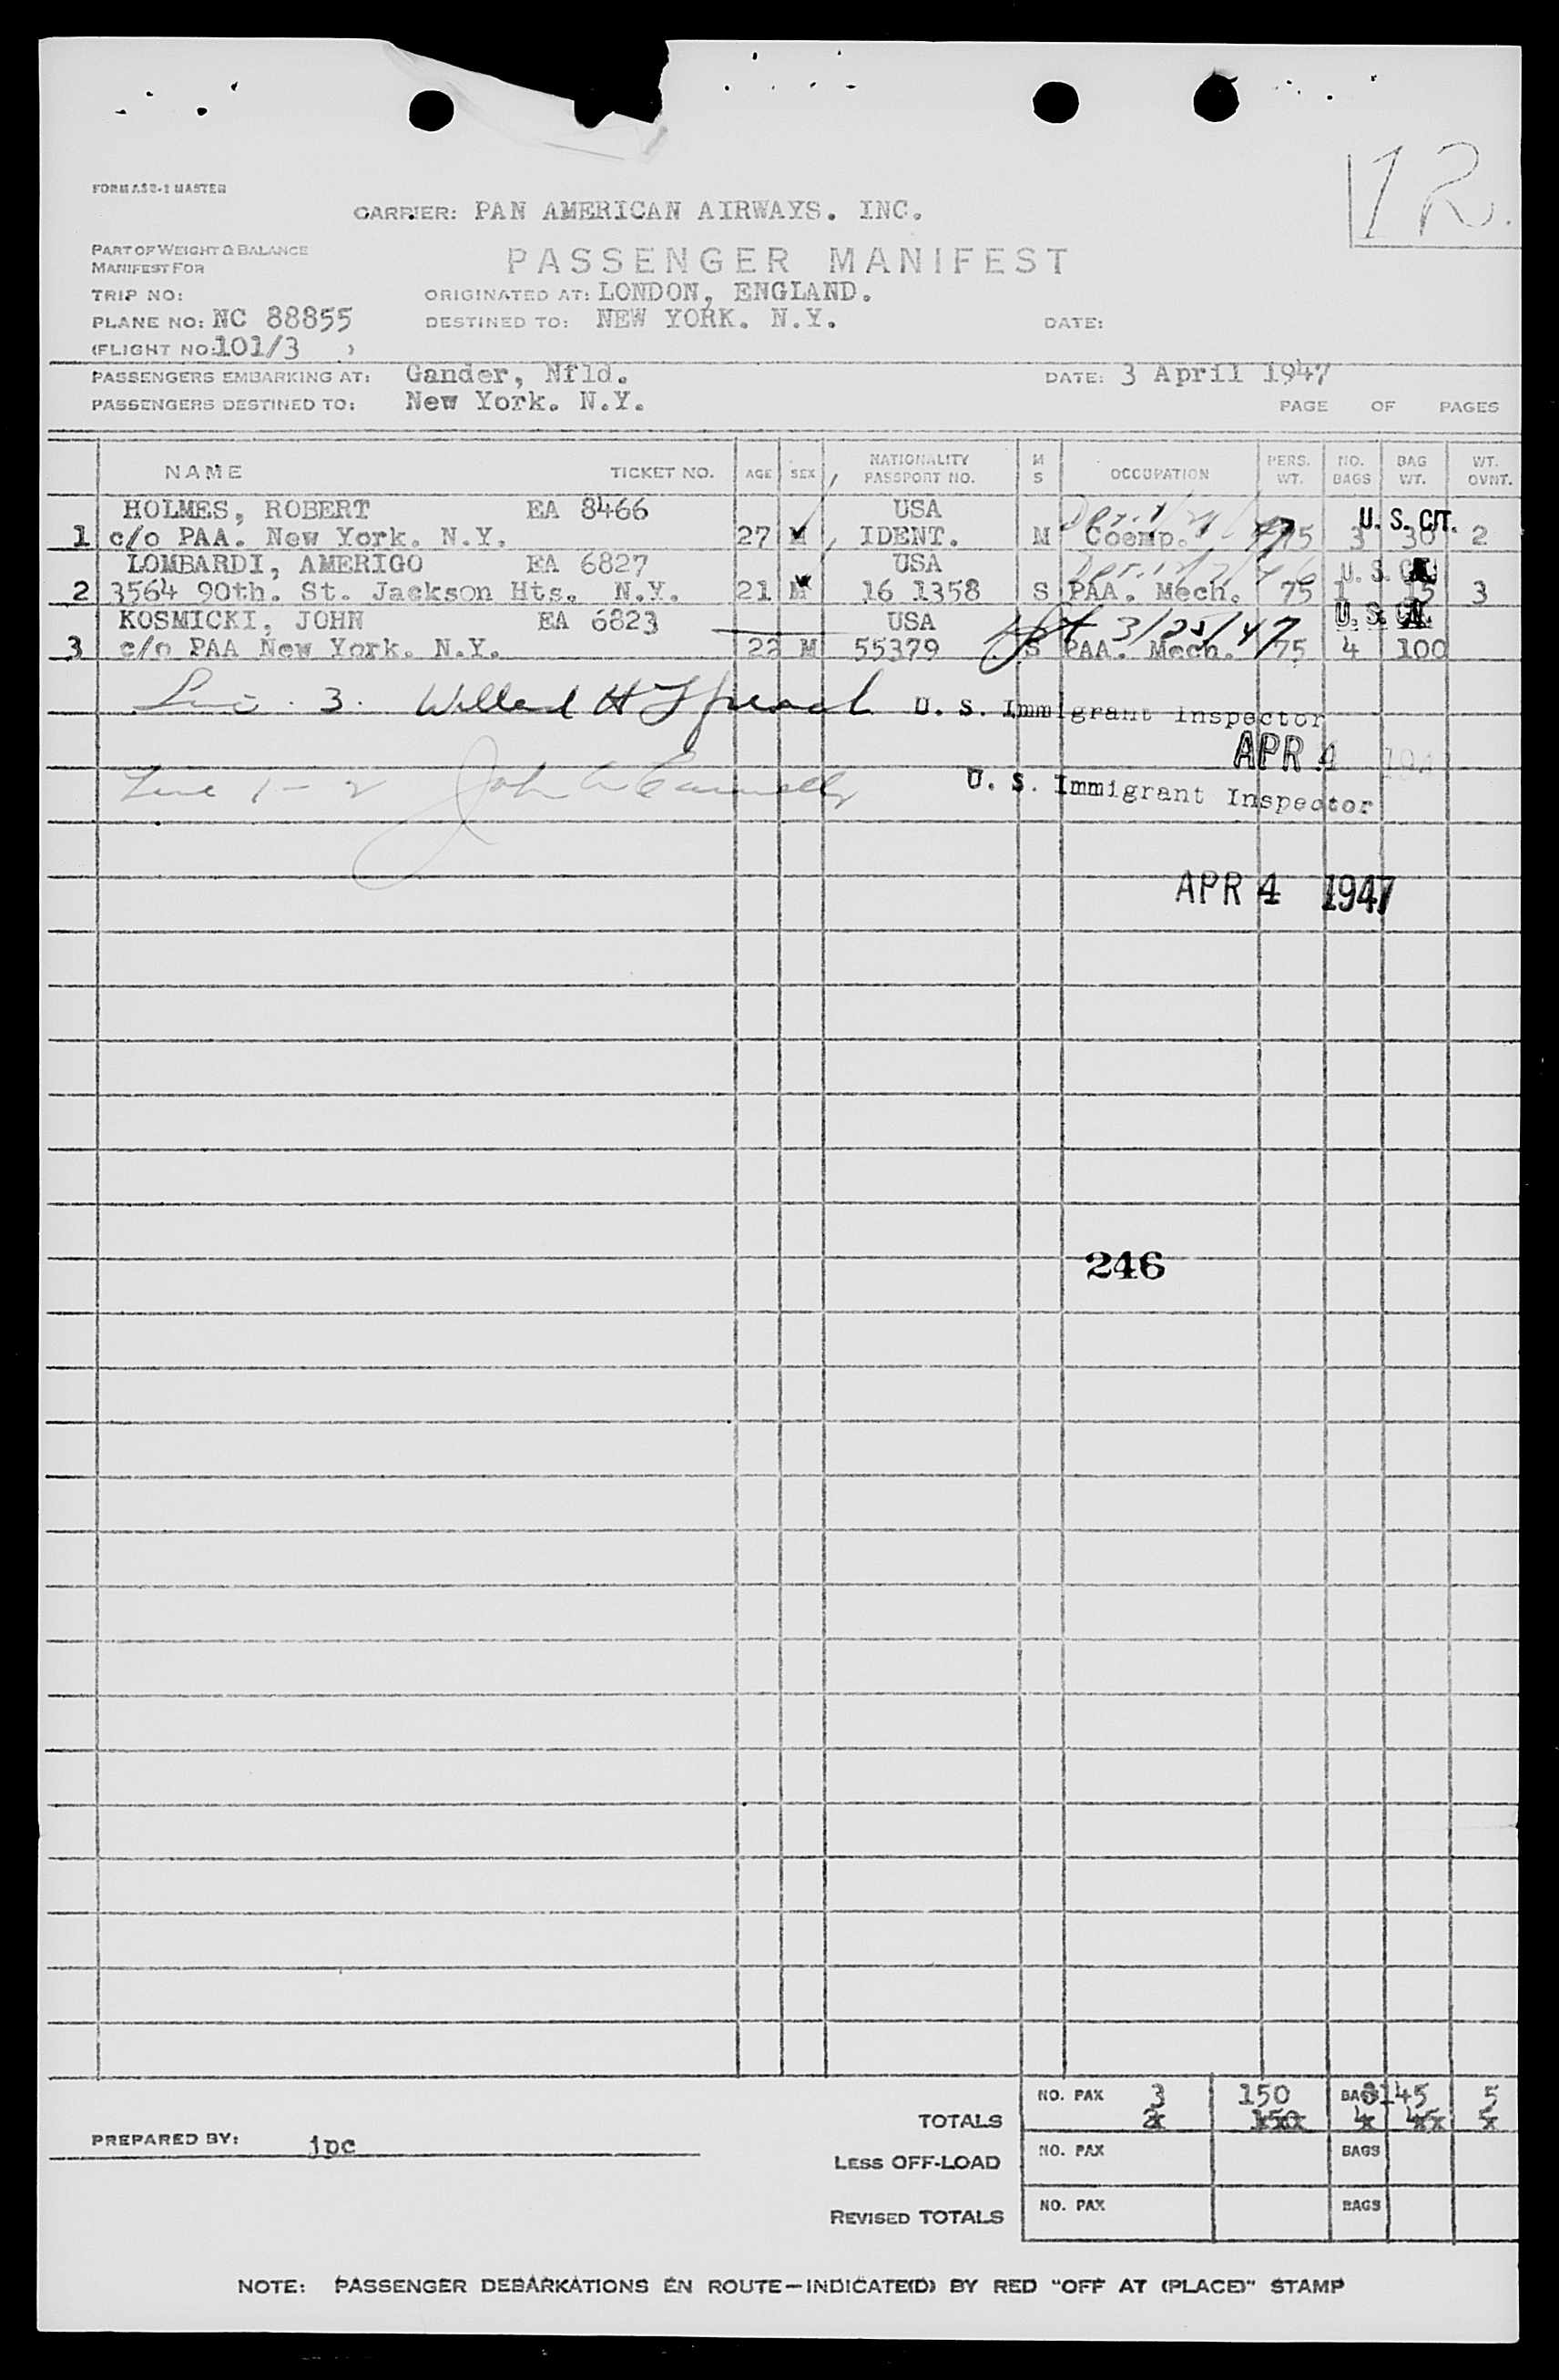 12.
FORM ASB-1 MASTER
CARRIER: PAN AMERICAN AIRWAYS. INC.
PART OF WEIGHT & BALANCE
MANIFEST FOR
PASSENGER MANIFEST
TRIP NO:
ORIGINATED AT: LONDON, ENGLAND.
PLANE NO: NC 88855
DESTINED TO: NEW YORK. N.Y.
DATE:
(FLIGHT NO: 101/3 )
PASSENGERS EMBARKING AT: Gander, Nfld.
DATE: 3 April 1947
PASSENGERS DESTINED TO: New York. N.Y.
PAGE OF PAGES
NAME TICKET NO. AGE SEX NATIONALITY PASSPORT NO. M S OCCUPATION PERS. WT. NO. BAGS BAG WT. WT. OVNT.
HOLMES, ROBERT EA 8466 USA U. S. CIT.
1 c/o PAA. New York. N.Y. 27 M IDENT. M Coemp. 75 3 30 2
LOMBARDI, AMERIGO EA 6827 USA U. S.
2 3564 90th. St. Jackson Hts. N.Y. 21 M 16 1358 S PAA. Mech. 75 1 15 3
KOSMICKI, JOHN EA 6823 USA 3/25/47 U. S.
3 c/o PAA New York. N.Y. 22 M 55379 S PAA. Mech. 75 4 100
3. Willard H U. S. Immigrant Inspector
APR 4
Line 1-2 John U. S. Immigrant Inspector
APR 4 1947
246
NO. PAX 3 150 BAGS 8 145 5
TOTALS 2x 150xx 4x 45x 5x
PREPARED BY: jpc
LESS OFF-LOAD NO. PAX BAGS
REVISED TOTALS NO. PAX BAGS
NOTE: PASSENGER DEBARKATIONS EN ROUTE—INDICATE(D) BY RED "OFF AT (PLACE)" STAMP